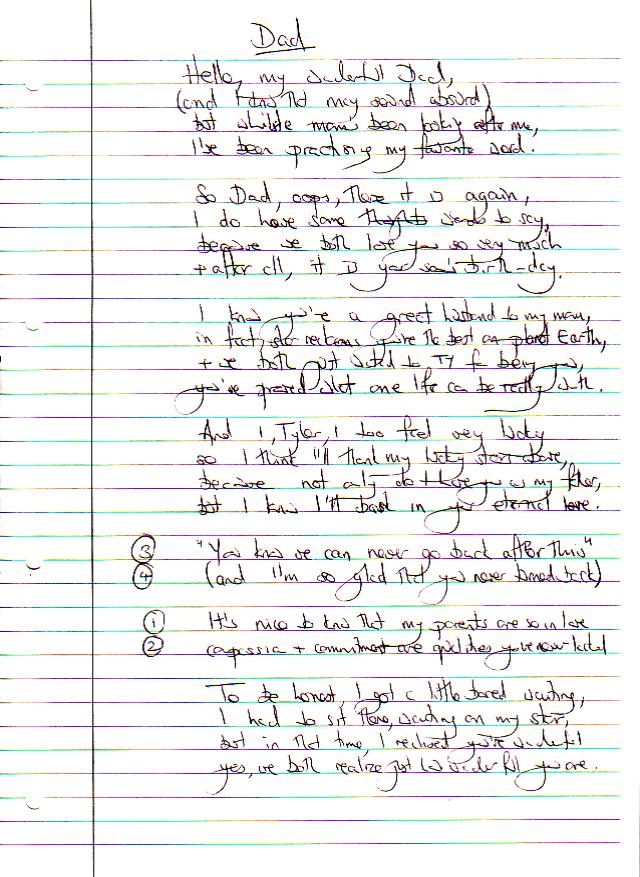 Dad
Hello, my wonderful Dad,
(and I know that may sound absurd)
but whilst mam's been looking after me,
I've been practising my favourite word.
So Dad, oops, there it is again,
I do have some thoughts words to say,
because we both love you so very much
+ after all, it is your son's birth-day.
I know you're a great husband to my mam,
in fact, she reckons you're the best on planet Earth,
+ we both just wanted to TY for being you,
you've proved what one life can be really worth.
And I, Tyler, I too feel very lucky
so I think I'll thank my lucky stars above,
because not only do I have you as my father,
but I know I'll bask in your eternal love.
③ "You know we can never go back after this"
④ (and I'm so glad that you never turned back)
① It's nice to know that my parents are so in love
② compassion + commitment are qualities you never lacked
To be honest, I got a little bored waiting,
I had to sit there, waiting on my star,
but in that time, I realised you're wonderful
yes, we both realize just how wonderful you are.